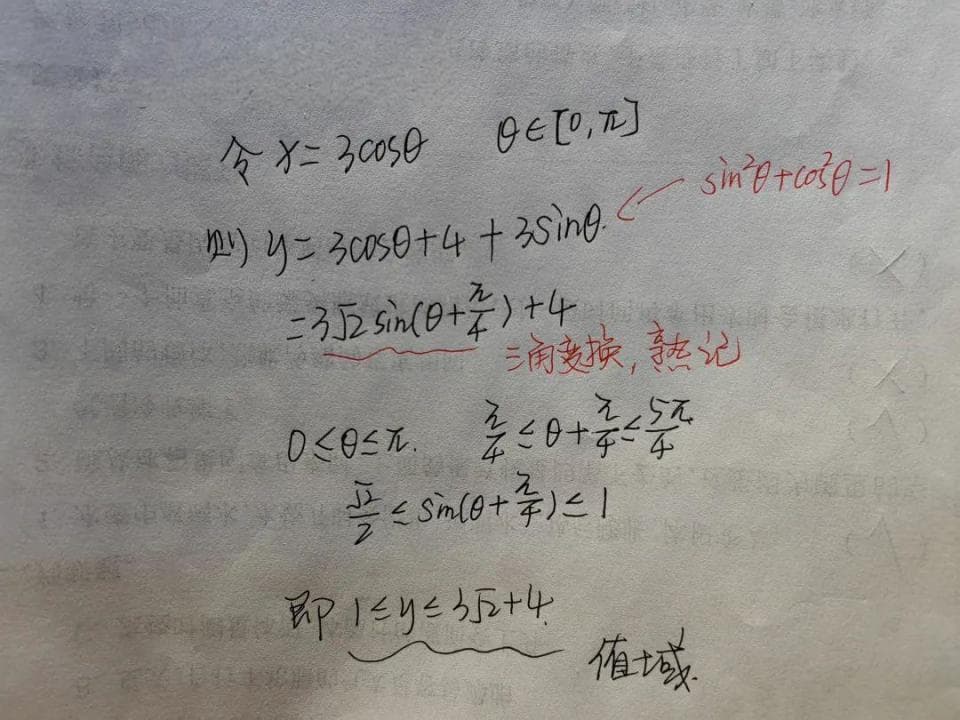 令 x = 3cosθ θ∈[0,π]
sin²θ+cos²θ=1
则 y = 3cosθ+4 + 3sinθ.
= 3√2 sin(θ+π/4)+4
三角变换,熟记
0≤θ≤π. π/4≤θ+π/4≤5π/4
√2/2≤sin(θ+π/4)≤1
即 1≤y≤3√2+4.
值域.